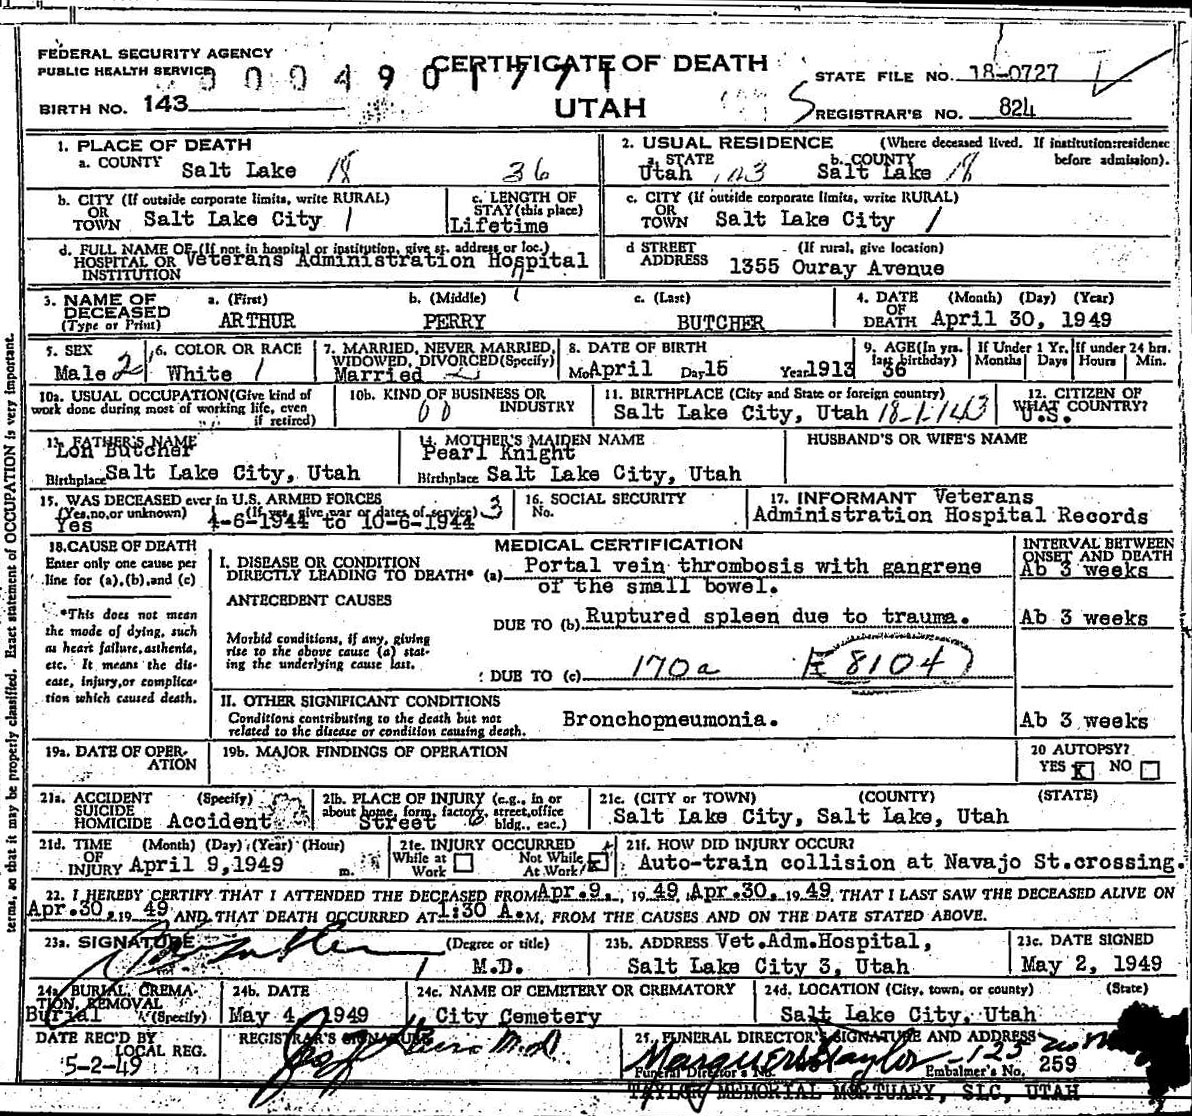 FEDERAL SECURITY AGENCY
PUBLIC HEALTH SERVICE
0004901771
CERTIFICATE OF DEATH
UTAH
STATE FILE NO. 18-0727
BIRTH NO. 143
REGISTRAR'S NO. 824
1. PLACE OF DEATH
a. COUNTY Salt Lake 18 36
2. USUAL RESIDENCE (Where deceased lived. If institution: residence before admission).
a. STATE Utah 143 b. COUNTY Salt Lake 18
b. CITY (If outside corporate limits, write RURAL) OR TOWN Salt Lake City 1
c. LENGTH OF STAY (this place) Lifetime
c. CITY (If outside corporate limits, write RURAL) OR TOWN Salt Lake City 1
d. FULL NAME OF (If not in hospital or institution, give st. address or loc.) HOSPITAL OR INSTITUTION Veterans Administration Hospital
d STREET ADDRESS (If rural, give location) 1355 Ouray Avenue
3. NAME OF DECEASED (Type or Print)
a. (First) ARTHUR
b. (Middle) PERRY
c. (Last) BUTCHER
4. DATE OF DEATH (Month) (Day) (Year) April 30, 1949
5. SEX Male 2
6. COLOR OR RACE White 1
7. MARRIED, NEVER MARRIED, WIDOWED, DIVORCED (Specify) Married
8. DATE OF BIRTH Mo April Day 15 Year 1913
9. AGE (In yrs. last birthday) 36
If Under 1 Yr. Months Days
If under 24 hrs. Hours Min.
10a. USUAL OCCUPATION (Give kind of work done during most of working life, even if retired)
10b. KIND OF BUSINESS OR INDUSTRY
11. BIRTHPLACE (City and State or foreign country) Salt Lake City, Utah 18-1-143
12. CITIZEN OF WHAT COUNTRY? U.S.
13. FATHER'S NAME
Lon Butcher
Birthplace Salt Lake City, Utah
14. MOTHER'S MAIDEN NAME
Pearl Knight
Birthplace Salt Lake City, Utah
HUSBAND'S OR WIFE'S NAME
15. WAS DECEASED ever in U.S. ARMED FORCES
(Yes, no, or unknown) (If yes, give war or dates of service) 3
Yes 4-6-1944 to 10-6-1944
16. SOCIAL SECURITY No.
17. INFORMANT Veterans
Administration Hospital Records
18. CAUSE OF DEATH
Enter only one cause per line for (a), (b), and (c)
*This does not mean the mode of dying, such as heart failure, asthenia, etc. It means the disease, injury, or complication which caused death.
MEDICAL CERTIFICATION
INTERVAL BETWEEN ONSET AND DEATH
I. DISEASE OR CONDITION DIRECTLY LEADING TO DEATH* (a) Portal vein thrombosis with gangrene of the small bowel.
Ab 3 weeks
ANTECEDENT CAUSES
DUE TO (b) Ruptured spleen due to trauma.
Ab 3 weeks
Morbid conditions, if any, giving rise to the above cause (a) stating the underlying cause last.
DUE TO (c) 170a E 8104
II. OTHER SIGNIFICANT CONDITIONS
Conditions contributing to the death but not related to the disease or condition causing death.
Bronchopneumonia.
Ab 3 weeks
19a. DATE OF OPERATION
19b. MAJOR FINDINGS OF OPERATION
20 AUTOPSY?
YES X NO
21a. ACCIDENT SUICIDE HOMICIDE (Specify) Accident
21b. PLACE OF INJURY (e.g., in or about home, form, factory, street, office bldg., eac.) Street 6
21c. (CITY or TOWN) (COUNTY) (STATE)
Salt Lake City, Salt Lake, Utah
21d. TIME OF INJURY (Month) (Day) (Year) (Hour) April 9, 1949 m.
21e. INJURY OCCURRED
While at Work Not While At Work X
21f. HOW DID INJURY OCCUR?
Auto-train collision at Navajo St. crossing.
22. I HEREBY CERTIFY THAT I ATTENDED THE DECEASED FROM Apr. 9., 1949, Apr. 30, 1949, THAT I LAST SAW THE DECEASED ALIVE ON
Apr. 30, 1949, AND THAT DEATH OCCURRED AT 1:30 A.M, FROM THE CAUSES AND ON THE DATE STATED ABOVE.
23a. SIGNATURE (Degree or title) M.D.
23b. ADDRESS Vet. Adm. Hospital,
Salt Lake City 3, Utah
23c. DATE SIGNED
May 2, 1949
24a. BURIAL, CREMATION, REMOVAL (Specify) Burial
24b. DATE
May 4, 1949
24c. NAME OF CEMETERY OR CREMATORY
City Cemetery
24d. LOCATION (City, town, or county) (State)
Salt Lake City, Utah
DATE REC'D BY LOCAL REG.
5-2-49
REGISTRAR'S SIGNATURE
M.D.
25. FUNERAL DIRECTOR'S SIGNATURE AND ADDRESS
Funeral Director's No. Embalmer's No. 259
TAYLOR MEMORIAL MORTUARY, SLC, UTAH
terms, so that it may be properly classified. Exact statement of OCCUPATION is very important.